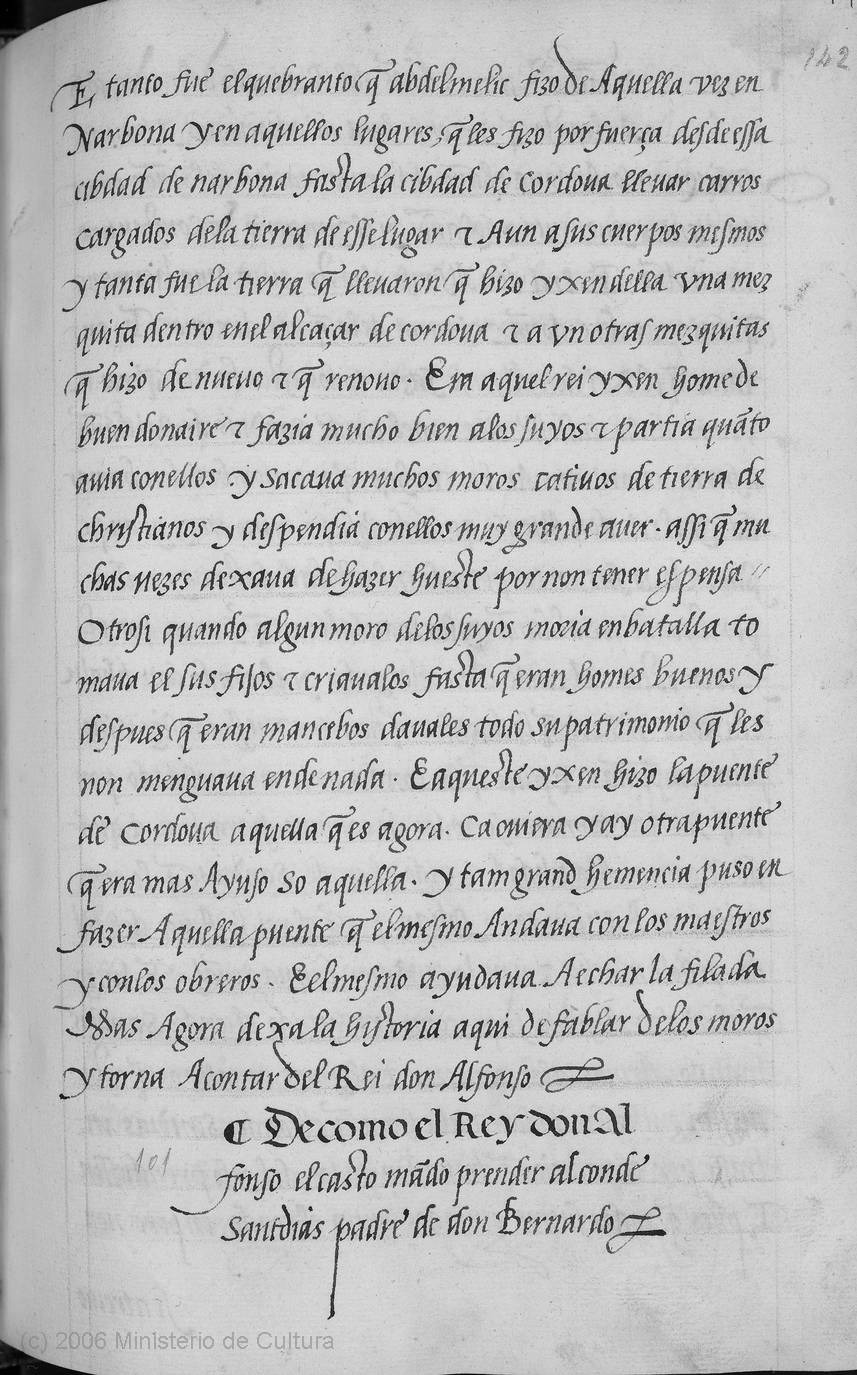 142
E, tanto fue el quebranto q̃ abdelmelic fizo de Aquella vez en
Narbona y en aquellos lugares, q̃ les fizo por fuerça desde essa
cibdad de narbona fasta la cibdad de Cordova llevar carros
cargados dela tierra de esse lugar ⁊ Aun a sus cuerpos mesmos
y tanta fue la tierra q̃ llevaron q̃ hizo yxen della vna mez
quita dentro enel alcaçar de cordova ⁊ avn otras mezquitas
q̃ hizo de nuevo ⁊ q̃ renovo. Era aquel rei yxen home de
buen donaire ⁊ fazia mucho bien alos suyos ⁊ partia quãto
avia conellos y sacava muchos moros cativos de tierra de
christianos y despendia conellos muy grande aver. assi q̃ mu
chas vezes dexava de hazer hueste por non tener espensa //
Otrosi quando algun moro delos suyos moria en batalla to
mava el sus fijos ⁊ criavalos fasta q̃ eran homes buenos y
despues q̃ eran mancebos davales todo su patrimonio q̃ les
non menguava ende nada. E aqueste yxen hizo la puente
de Cordova aquella q̃ es agora. Ca oviera y ay otra puente
q̃ era mas Ayuso so aquella. y tam grand hemencia puso en
fazer Aquella puente q̃ el mesmo Andava con los maestros
y conlos obreros. E el mesmo ayudava A echar la filada
Mas Agora dexa la historia aqui de fablar delos moros
y torna A contar del Rei don Alfonso
¶ De como el Rey don Al
101
fonso el casto mãdo prender al conde
Santdias padre de don Bernardo
(c) 2006 Ministerio de Cultura